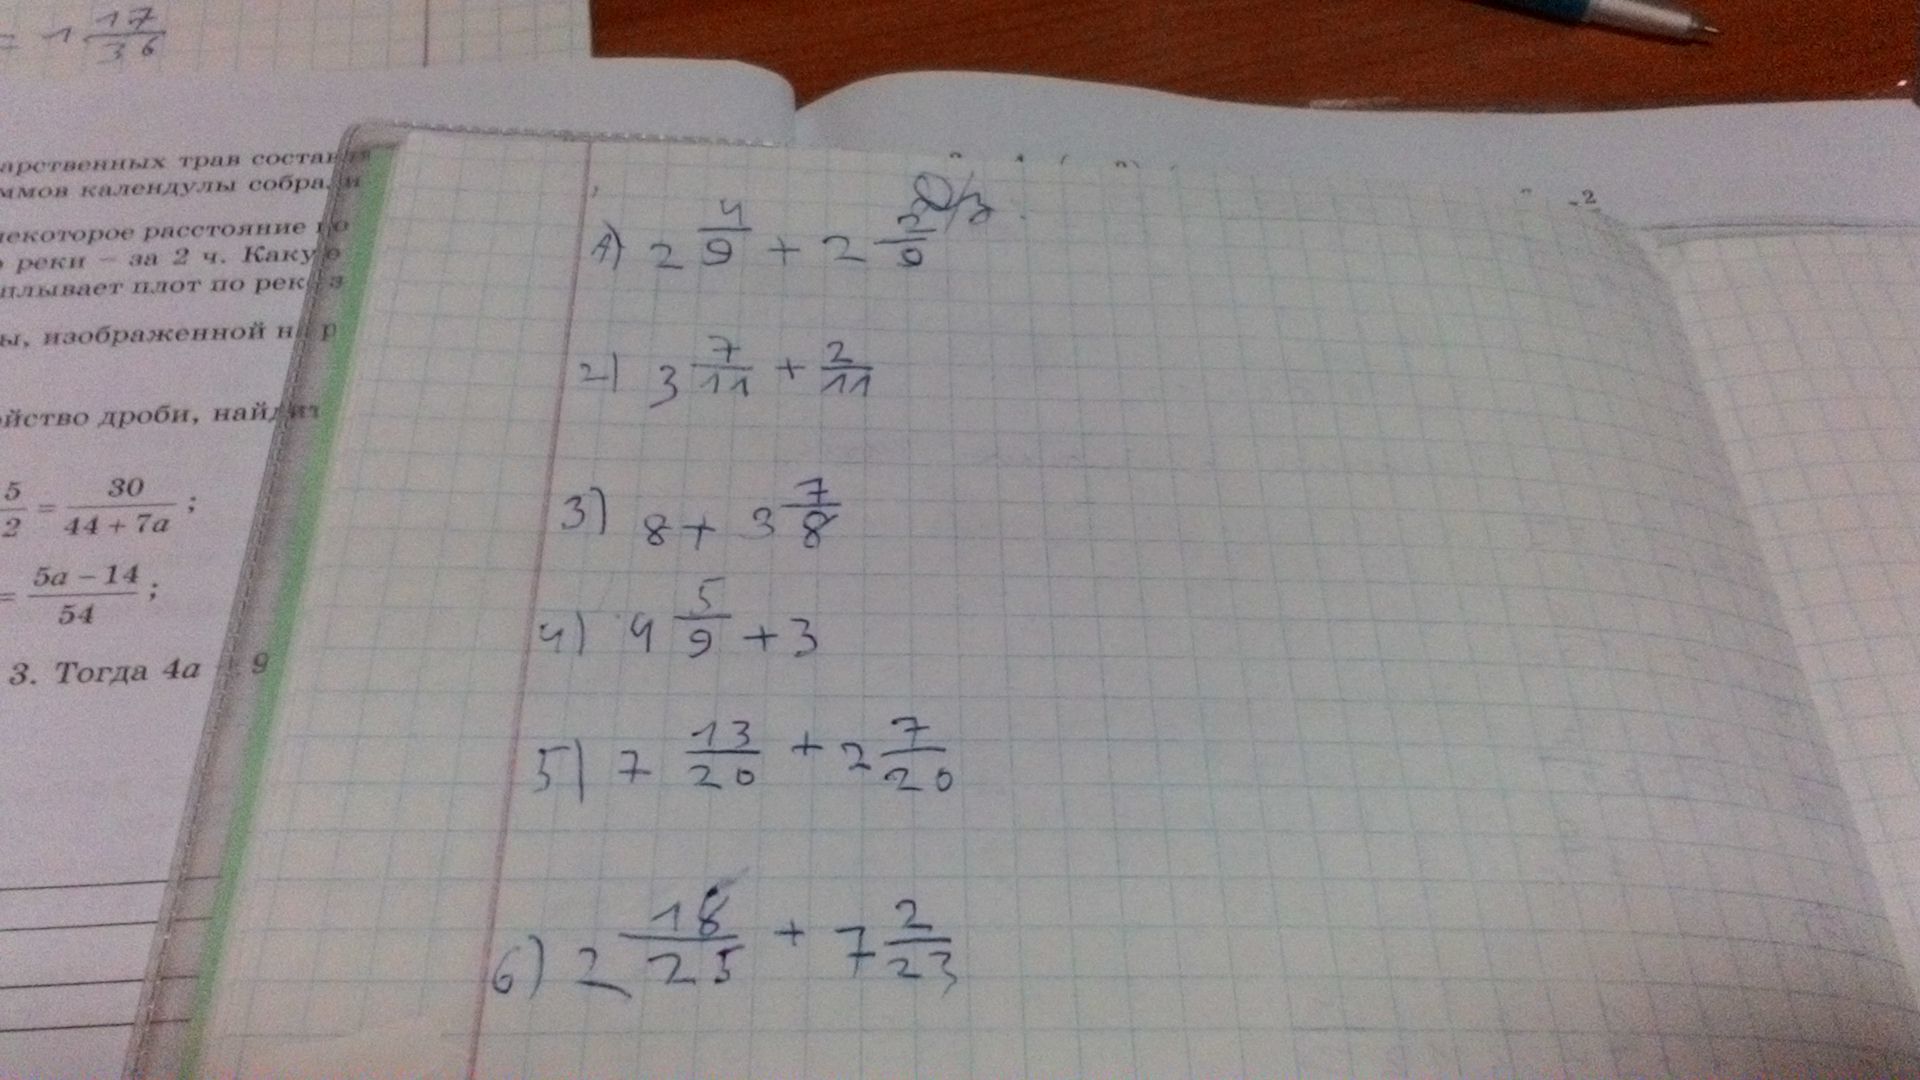 = 1 17/36
арственных трав состав
ммов календулы собрали
некоторое расстояние по
реки – за 2 ч. Какую
плывает плот по реке з
ы, изображенной на р
йство дроби, найдит
5/2 = 30/(44 + 7a) ;
= (5a – 14)/54 ;
3. Тогда 4a + 9
Д/з.
1) 2 4/9 + 2 2/9
2) 3 7/11 + 2/11
3) 8 + 3 7/8
4) 4 5/9 + 3
5) 7 13/20 + 2 7/20
6) 2 18/25 + 7 2/23